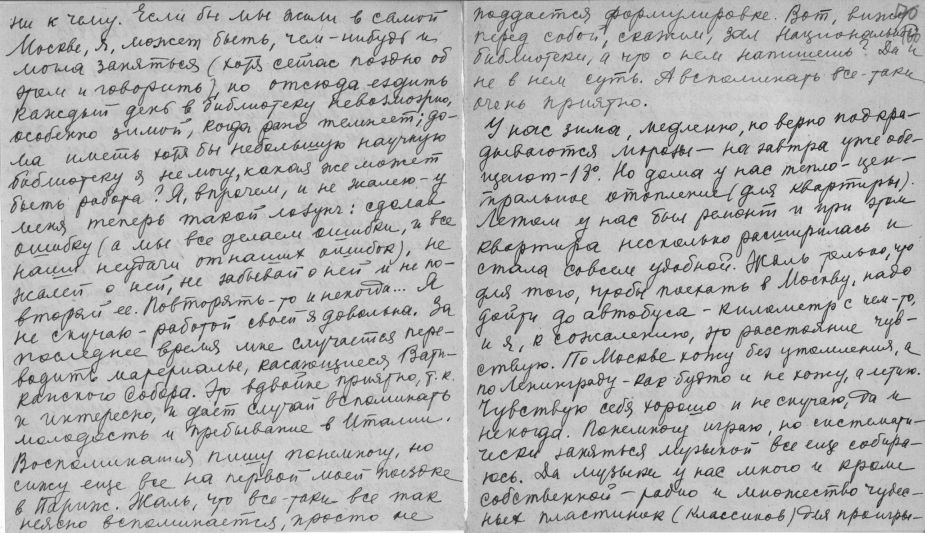 ни к чему. Если бы мы жили в самой
Москве, я, может быть, чем-нибудь и
могла заняться (хотя сейчас поздно об
этом и говорить), но отсюда ездить
каждый день в библиотеку невозможно,
особенно зимой, когда рано темнеет; до-
ма иметь хотя бы небольшую научную
библиотеку я не могу, какая же может
быть работа? Я, впрочем, и не жалею – у
меня теперь такой лозунг: сделав
ошибку (а мы все делаем ошибки, и все
наши неудачи от наших ошибок), не
жалей о ней, не забывай о ней и не по-
вторяй ее. Повторять-то и некогда... Я
не скучаю – работой своей я довольна. За
последнее время мне случается пере-
водить материалы, касающиеся Вати-
канского Собора. Это вдвойне приятно, т.к.
и интересно, и дает случай вспоминать
молодость и пребывание в Италии.
Воспоминания пишу понемногу, но
сижу еще все на первой моей поездке
в Париж. Жаль, что все-таки все так
неясно вспоминается, просто не
поддается формулировке. Вот, вижу
перед собой, скажем, зал Национальной
библиотеки, а что о нем напишешь? Да и
не в нем суть. А вспоминать все-таки
очень приятно.
У нас зима, медленно, но верно подкра-
дываются морозы – на завтра уже обе-
щают -18°. Но дома у нас тепло – цен-
тральное отопление (для квартиры).
Летом у нас был ремонт и при этом
квартира несколько расширилась и
стала совсем удобной. Жаль только, что
для того, чтобы поехать в Москву, надо
дойти до автобуса – километр с чем-то,
и я, к сожалению, это расстояние чув-
ствую. По Москве хожу без утомления, а
по Ленинграду – как будто и не хожу, а летаю.
Чувствую себя хорошо и не скучаю, да и
некогда. Понемногу играю, но системати-
чески заняться музыкой все еще собира-
юсь. Да музыки у нас много и кроме
собственной – радио и множество чудес-
ных пластинок (классиков) для проигры-